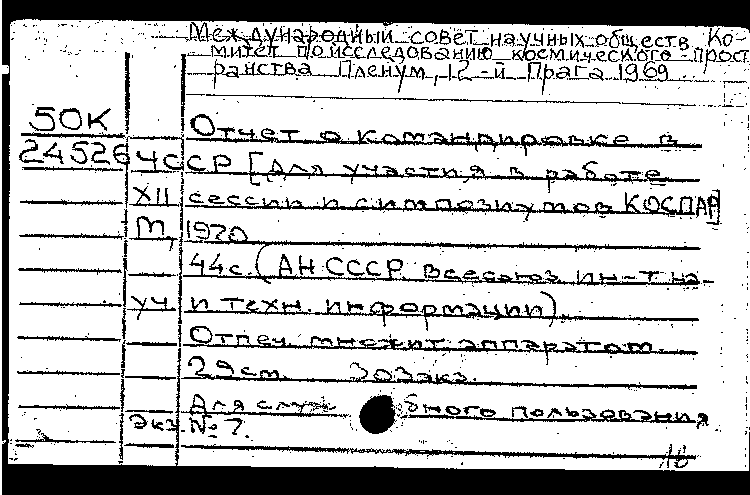 Международный совет научных обществ Ко-
митет по исследованию космического прост
ранства Пленум, 12-й Прага 1969
50К
Отчет о командировке в
24526 ЧССР [Для участия в работе
XII сессии и симпозиумов КОСПАР]
М, 1970
44с. (АН СССР Всесоюз ин-т на-
уч и техн. информации).
Отпеч множит аппаратом.
29см. 30экз.
Для служебного пользования
экз № 7.